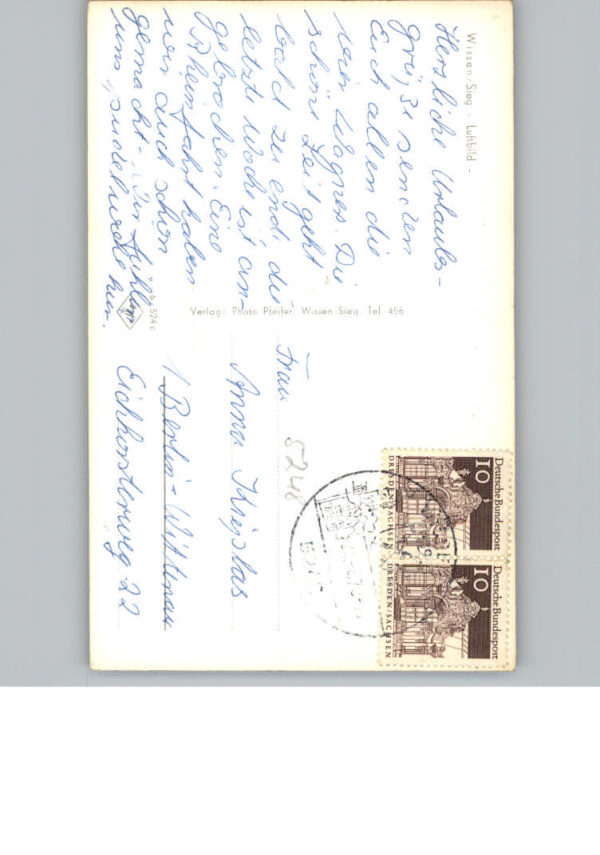 Wissen/Sieg - Luftbild -
Herzliche Urlaubs-
grüße senden
Euch allen die
vier Wagner. Die
schöne Zeit geht
bald zu ende, die
letzte Woche ist an-
gebrochen. Eine
Rheinfahrt haben
wir auch schon
gemacht. Wir fühlen
uns pudelwohl hier.
Verlag: Photo Pfeifer, Wissen Sieg, Tel. 456
Frau
Anna
1 Berlin - Wittenau
Eichhorsterweg 22
5248
10
Deutsche Bundespost
DRESDEN/SACHSEN
10
Deutsche Bundespost
DRESDEN/SACHSEN